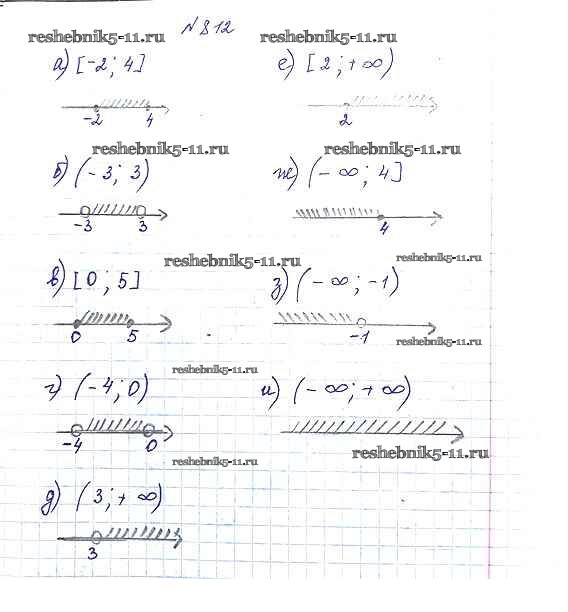 № 812
reshebnik5-11.ru reshebnik5-11.ru
а) [-2; 4] е) [2; +∞)
-2 4 2
reshebnik5-11.ru reshebnik5-11.ru
б) (-3; 3) ж) (-∞; 4]
-3 3 4
reshebnik5-11.ru reshebnik5-11.ru
в) [0; 5] з) (-∞; -1)
0 5 -1
reshebnik5-11.ru
reshebnik5-11.ru
г) (-4; 0) и) (-∞; +∞)
-4 0
reshebnik5-11.ru
reshebnik5-11.ru
д) (3; +∞)
3